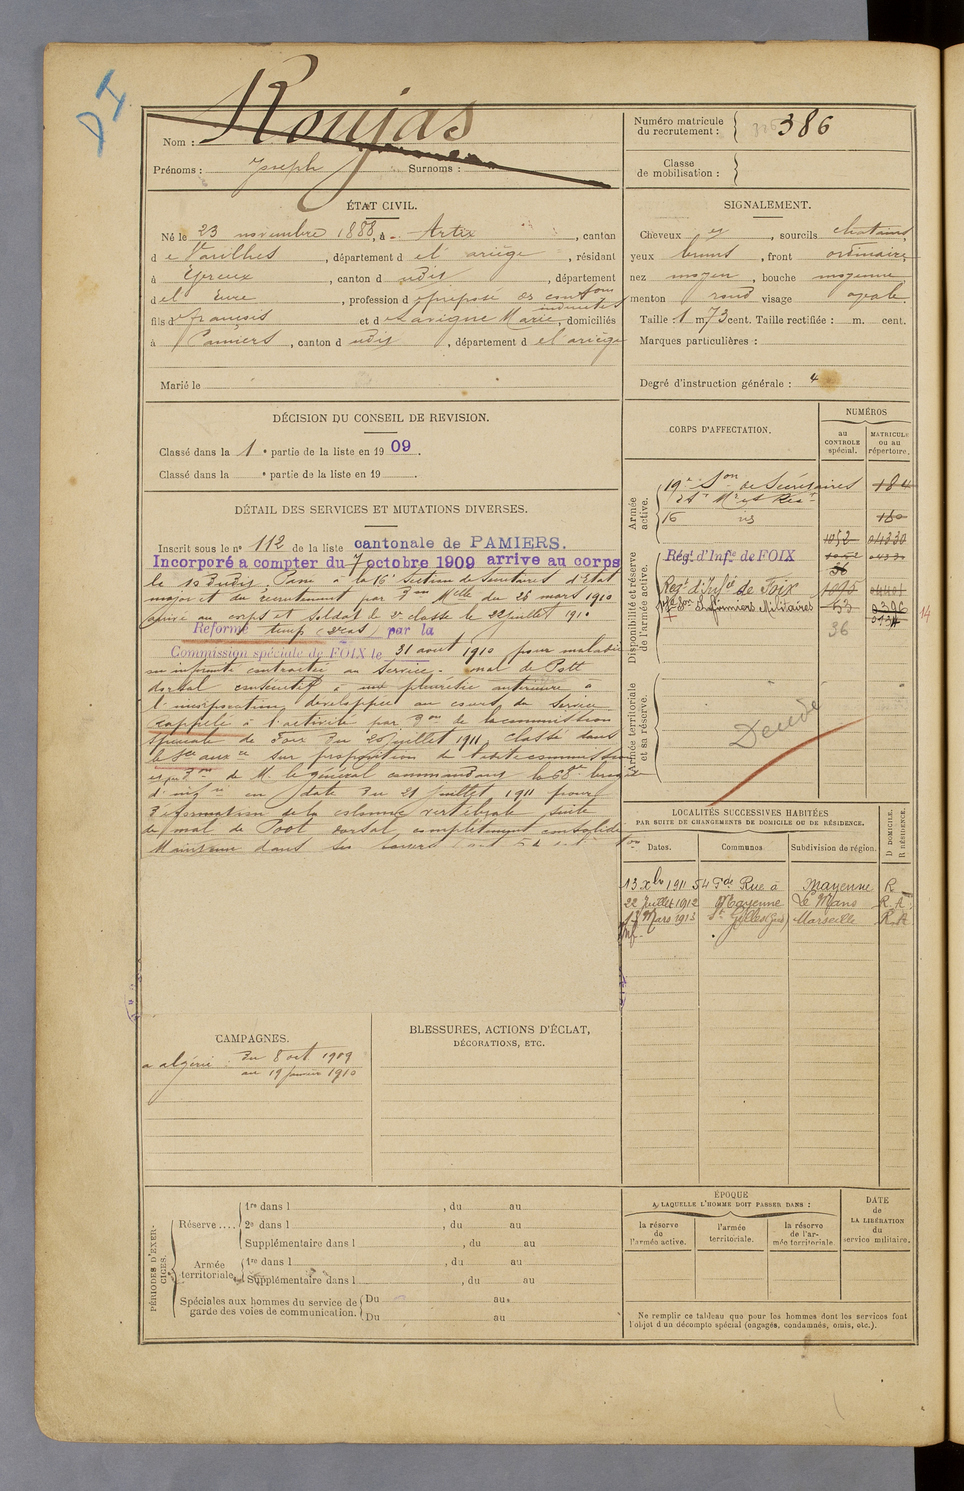 D I
Nom : Roujas
Prénoms : Joseph Surnoms :
Numéro matricule
du recrutement : 386
Classe
de mobilisation :
ÉTAT CIVIL.
Né le 23 novembre 1888, à Artix, canton
de Varilhes, département d el ariège, résidant
à Evreux, canton d udis, département
d el Eure, profession d préposé des contons
indirectes
fils de françois et de Lavigne Marie, domiciliés
à Pamiers, canton d udis, département d el ariège
Marié le
SIGNALEMENT.
Cheveux, sourcils chatains,
yeux bruns, front ordinaire
nez moyen, bouche moyenne
menton rond visage ovale
Taille : 1 m. 73 cent. Taille rectifiée : m. cent.
Marques particulières :
Degré d'instruction générale : 4
DÉCISION DU CONSEIL DE REVISION.
Classé dans la 1e partie de la liste en 1909.
Classé dans la e partie de la liste en 19 .
DÉTAIL DES SERVICES ET MUTATIONS DIVERSES.
Inscrit sous le no 112 de la liste cantonale de PAMIERS.
Incorporé a compter du 7 octobre 1909 arrive au corps
le 10 dudis. Passé à la 16e Section de Secrétaires d'Etat
major et du recrutement par Don Melle du 26 mars 1910
arrivé au corps et soldat de 2e classe le 22 juillet 1910
Réformé temp (2e cas) par la
Commission spéciale de FOIX le 31 aout 1910 pour maladie
ou infirmité contractée au service - mal de Pott
dorsal consécutif à une pleurésie antérieure à
l'incorporation, développée au cours du service
rappelé à l'activité par Don de la commission
spéciale de Foix du 20 juillet 1911, classé dans
le Sce auxre sur proposition de ladite commission
de M. le général commandant la 68e brigade
d'infie en date du 21 juillet 1911 pour
déformation de la colonne vertébrale suite
de mal de Pott dorsal complètement consolidé
Maintenu dans
CORPS D'AFFECTATION.
NUMÉROS
au
CONTROLE
spécial.
MATRICULE
ou au
répertoire.
Armée
active.
19e Son de Secrétaires
d'Et Mr et Rec
184
16 is
180
Disponibilité et réserve
de l'armée active.
1052 04330
Régt d'Infie de FOIX
36
Regt d'Infie de Foix 1095
Son Infirmiers Militaires 53 0396
36
14
Armée territoriale
et sa réserve.
Décédé
LOCALITÉS SUCCESSIVES HABITÉES
PAR SUITE DE CHANGEMENTS DE DOMICILE OU DE RÉSIDENCE.
Dates. Communes Subdivision de région. D DOMICILE. R RÉSIDENCE.
13 Xbre 1911 54 Gde Rue à Mayenne R
22 Juillet 1912 Mayenne Le Mans R. A.
17 Mars 1913 St Gilles (Gard) Marseille R. A
CAMPAGNES.
algérie : du 8 oct. 1909
au 19 janvier 1910
BLESSURES, ACTIONS D'ÉCLAT,
DÉCORATIONS, ETC.
PÉRIODES D'EXERCICES.
Réserve .... 1re dans l , du au
2e dans l , du au
Supplémentaire dans l , du au
Armée
territoriale 1re dans l , du au
Supplémentaire dans l , du au
Spéciales aux hommes du service de
garde des voies de communication. Du au
Du au
ÉPOQUE
A LAQUELLE L'HOMME DOIT PASSER DANS :
la réserve
de
l'armée active.
l'armée
territoriale.
la réserve
de l'ar-
mée territoriale
DATE
de
LA LIBÉRATION
du
service militaire.
Ne remplir ce tableau que pour les hommes dont les services font
l'objet d'un décompte spécial (engagés, condamnés, omis, etc.).